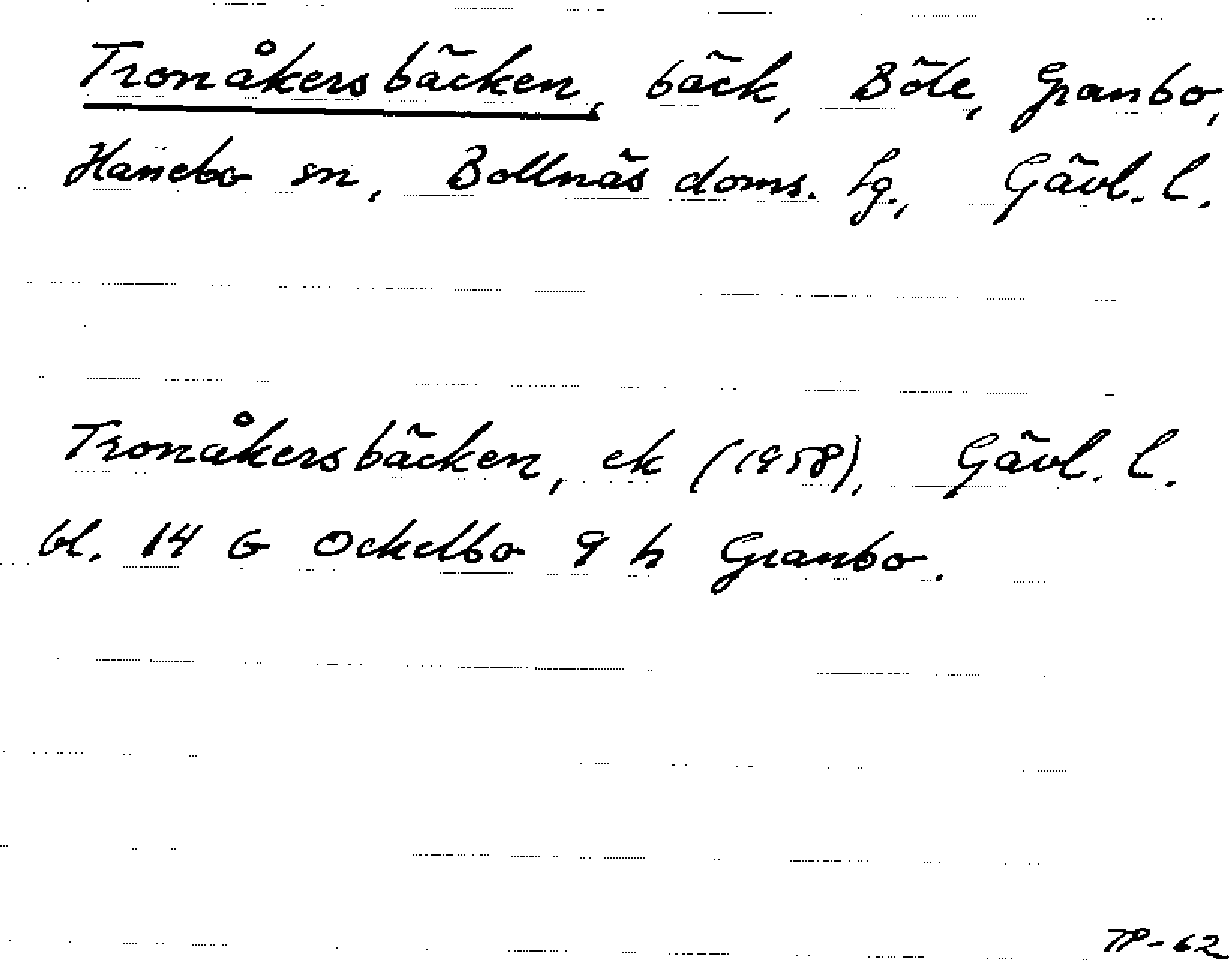 Tronåkersbäcken, bäck, Böle, Granbo,
Hanebo sn, Bollnäs doms. tg., Gävl. l.
Tronåkersbäcken, ek (1958), Gävl. l.
bl. 14 G Ockelbo 9 h Granbo.
TP-62